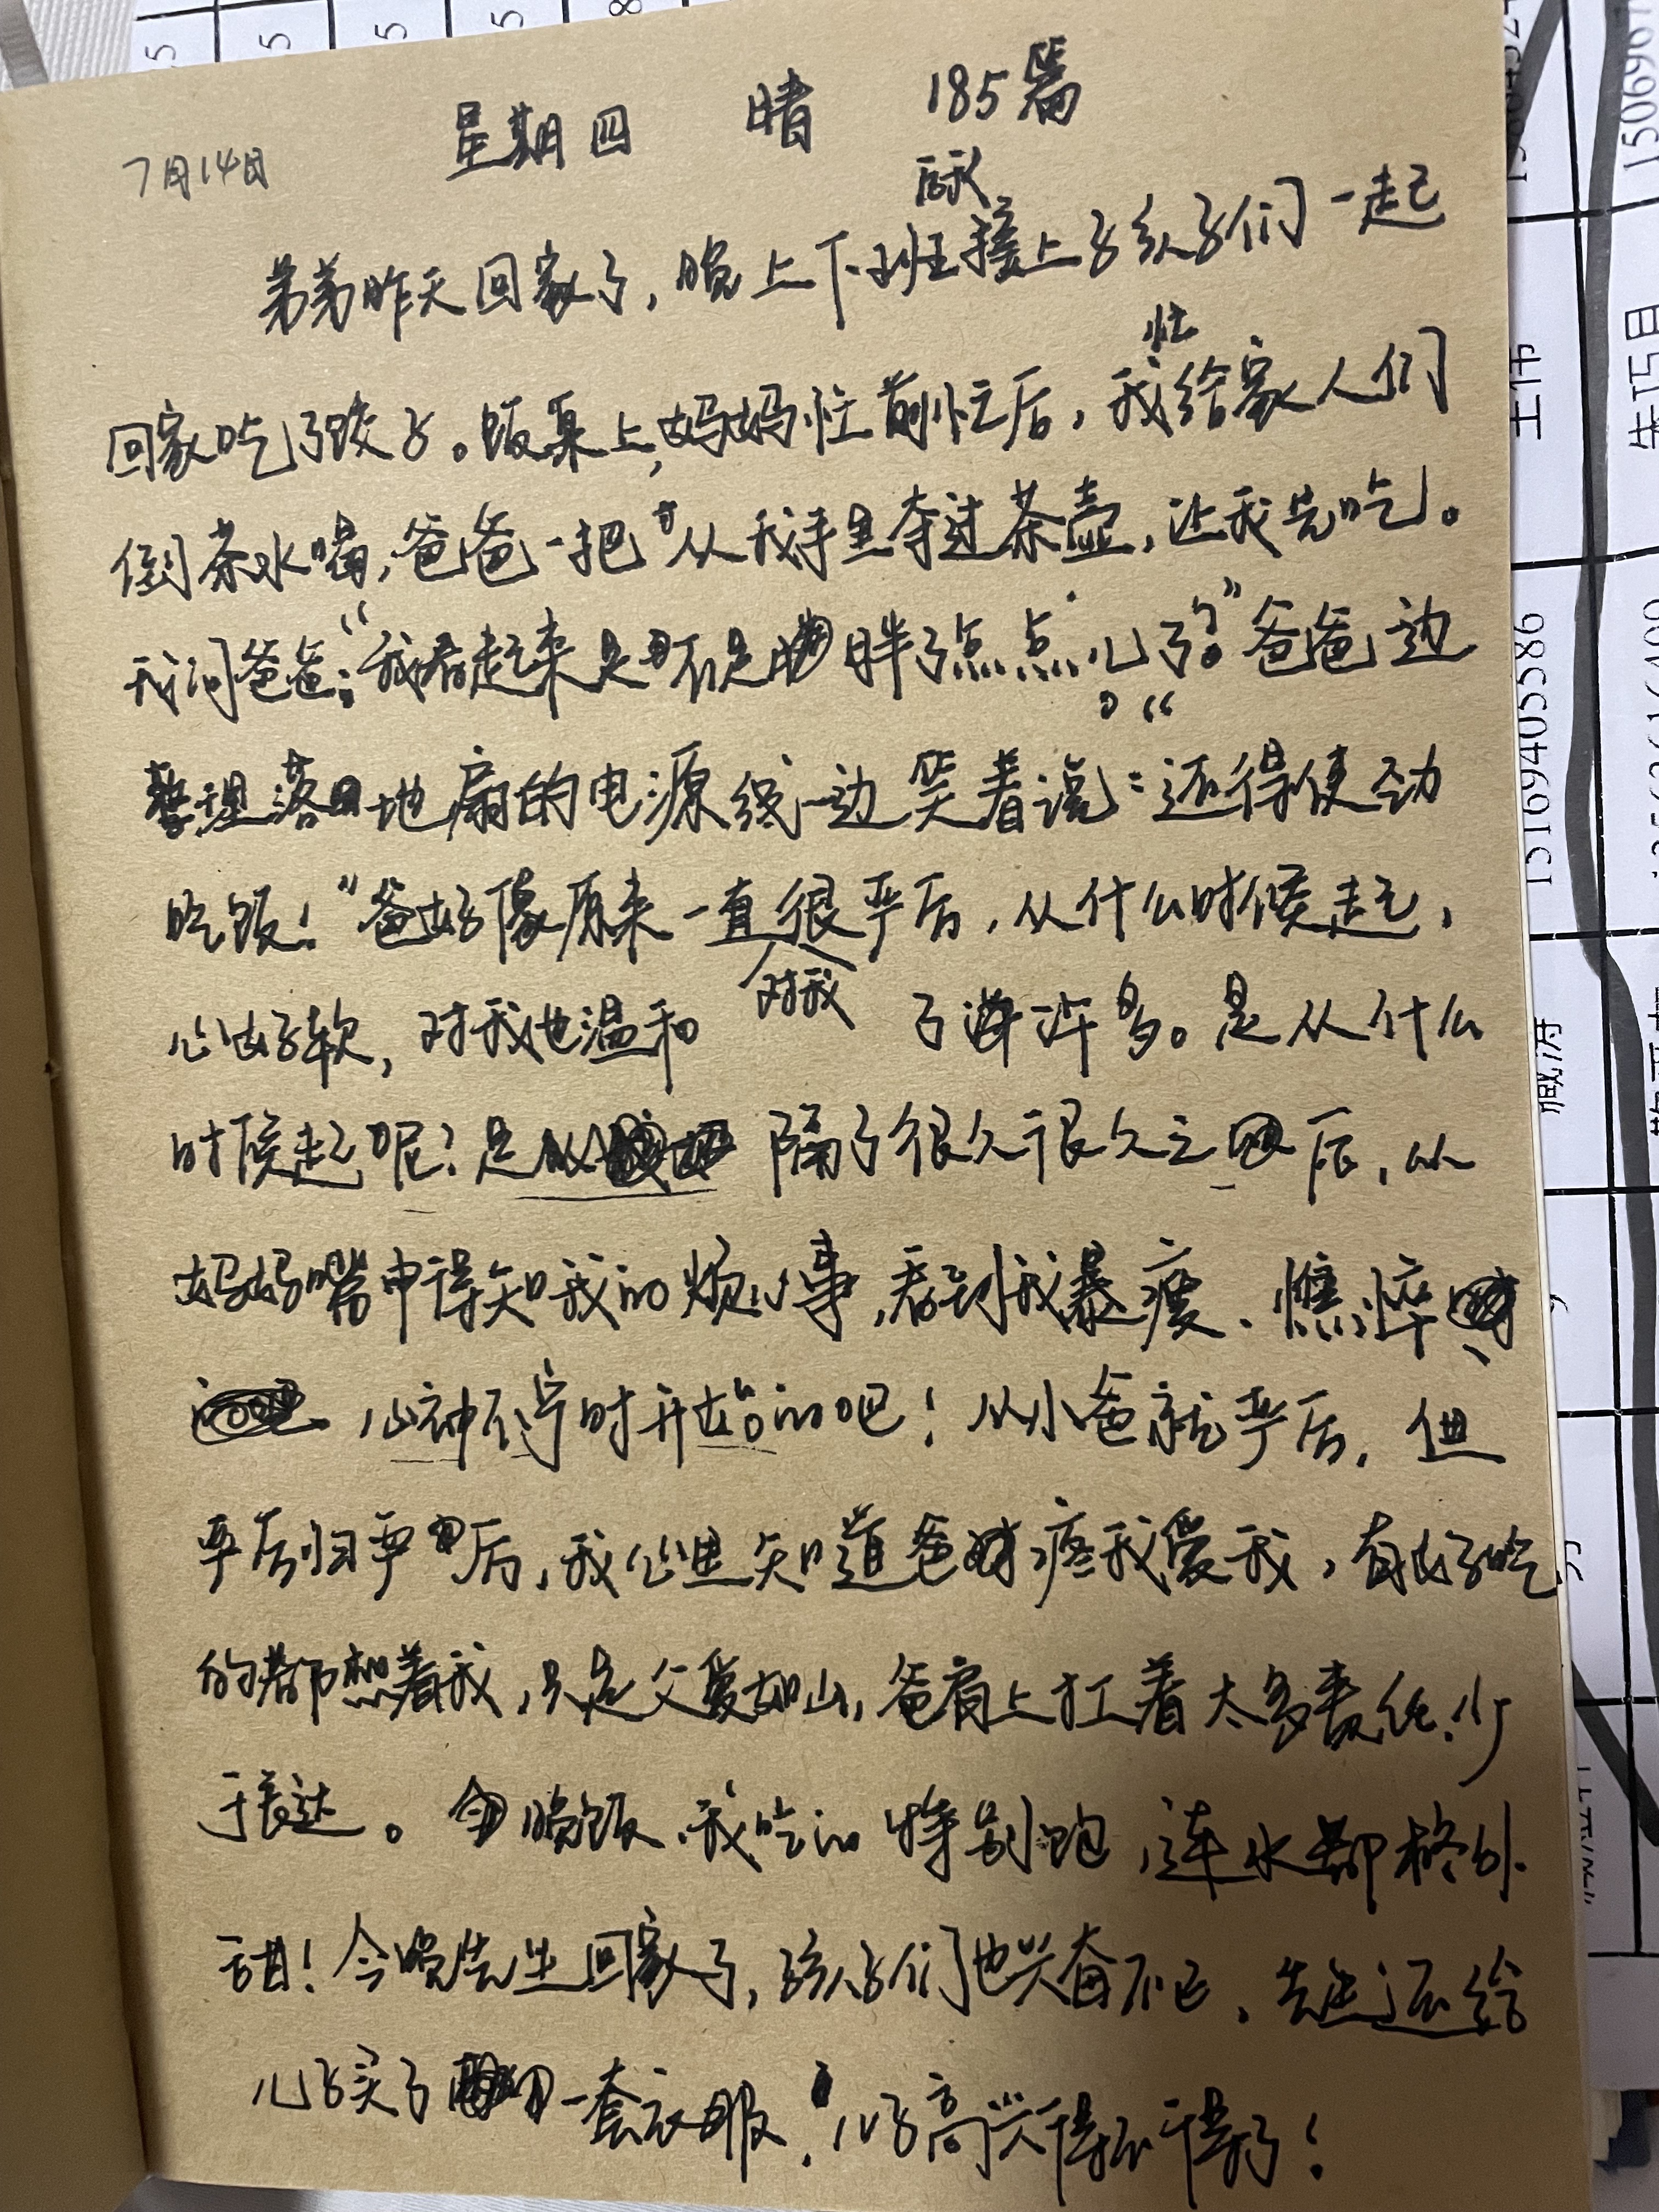 7月14日 星期四 晴 185篇
后我
弟弟昨天回家了,晚上下班接上了孩子们一起
忙
回家吃了饺子。饭桌上,妈妈忙前忙后,我给家人们
倒茶水喝,爸爸一把从我手里夺过茶壶,让我先吃。
我问爸爸:“我看起来是不是胖了点点儿了?”爸爸边
整理落地扇的电源线一边笑着说:“还得使劲
吃饭!”爸好像原来一直很严厉,从什么时候起,
对我
心好软,对我也温和了许多。是从什么
时候起呢?是隔了很久很久之后,从
妈妈嘴中得知我的烦心事,看到我暴瘦、憔悴、
心神不宁时开始的吧!从小爸就严厉,但
严厉归严厉,我心里知道爸疼我爱我,有好吃
的都想着我,只是父爱如山,爸肩上扛着太多责任,少
于表达。晚饭,我吃的特别饱,连水都格外
甜!今晚先生回家了,孩子们也兴奋不已,先生还给
儿子买了一套衣服,儿子高兴得不得了!
王伟
15169405586
臧海